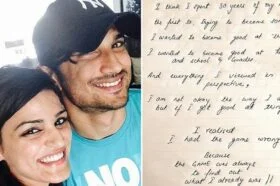 I think I spent 30 years of my
the first 30, trying to become som
I wanted to become good at
I wanted to become good at
and school & Grades
And everything I viewed in
perspective,
I am not okay the way I
but if I got good at thing
I realised
I had the game wrong
Because
the Game was always
to find out
what I already was !!